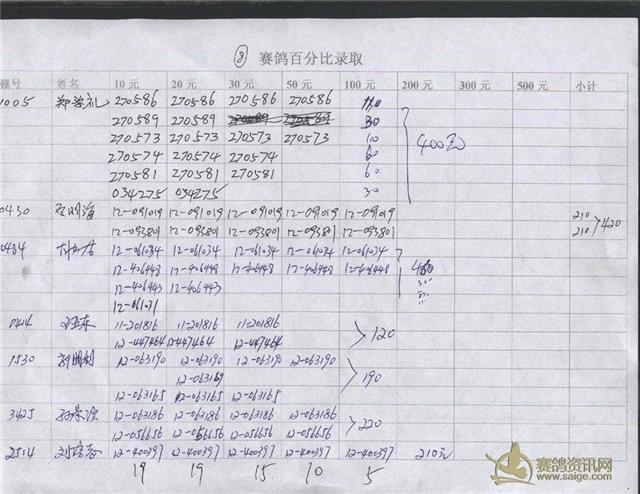 ⑧ 赛鸽百分比录取
棚号 姓名 10元 20元 30元 50元 100元 200元 300元 500元 小计
1005 270586 270586 270586 270586 110
270589 270589 270589 270589 30
270573 270573 270573 270573 10
270574 270574 270574 60 400
270581 270581 270581 60
034275 034275 30
0430 12-091019 12-091019 12-091019 12-091019 12-091019 210
12-093801 12-093801 12-093801 12-093801 12-093801 210 >420
0434 12-061034 12-061034 12-061034 12-061034 12-061034
12-406448 12-406448 12-406448 12-406448 12-406448
12-406443 12-406443
12-061031
0414 11-201816 11-201816 11-201816
12-447464 12-447464 12-447464 >120
1530 12-063190 12-063190 12-063190 12-063190
12-063169 >190
12-063165 12-063165 12-063165
3425 12-063186 12-063186 12-063186 12-063186
12-056656 12-056656 12-056656 12-056656 >220
2514 12-400397 12-400397 12-400397 12-400397 12-400397 210元
19 19 15 10 5
赛鸽资讯网
www.saige.com